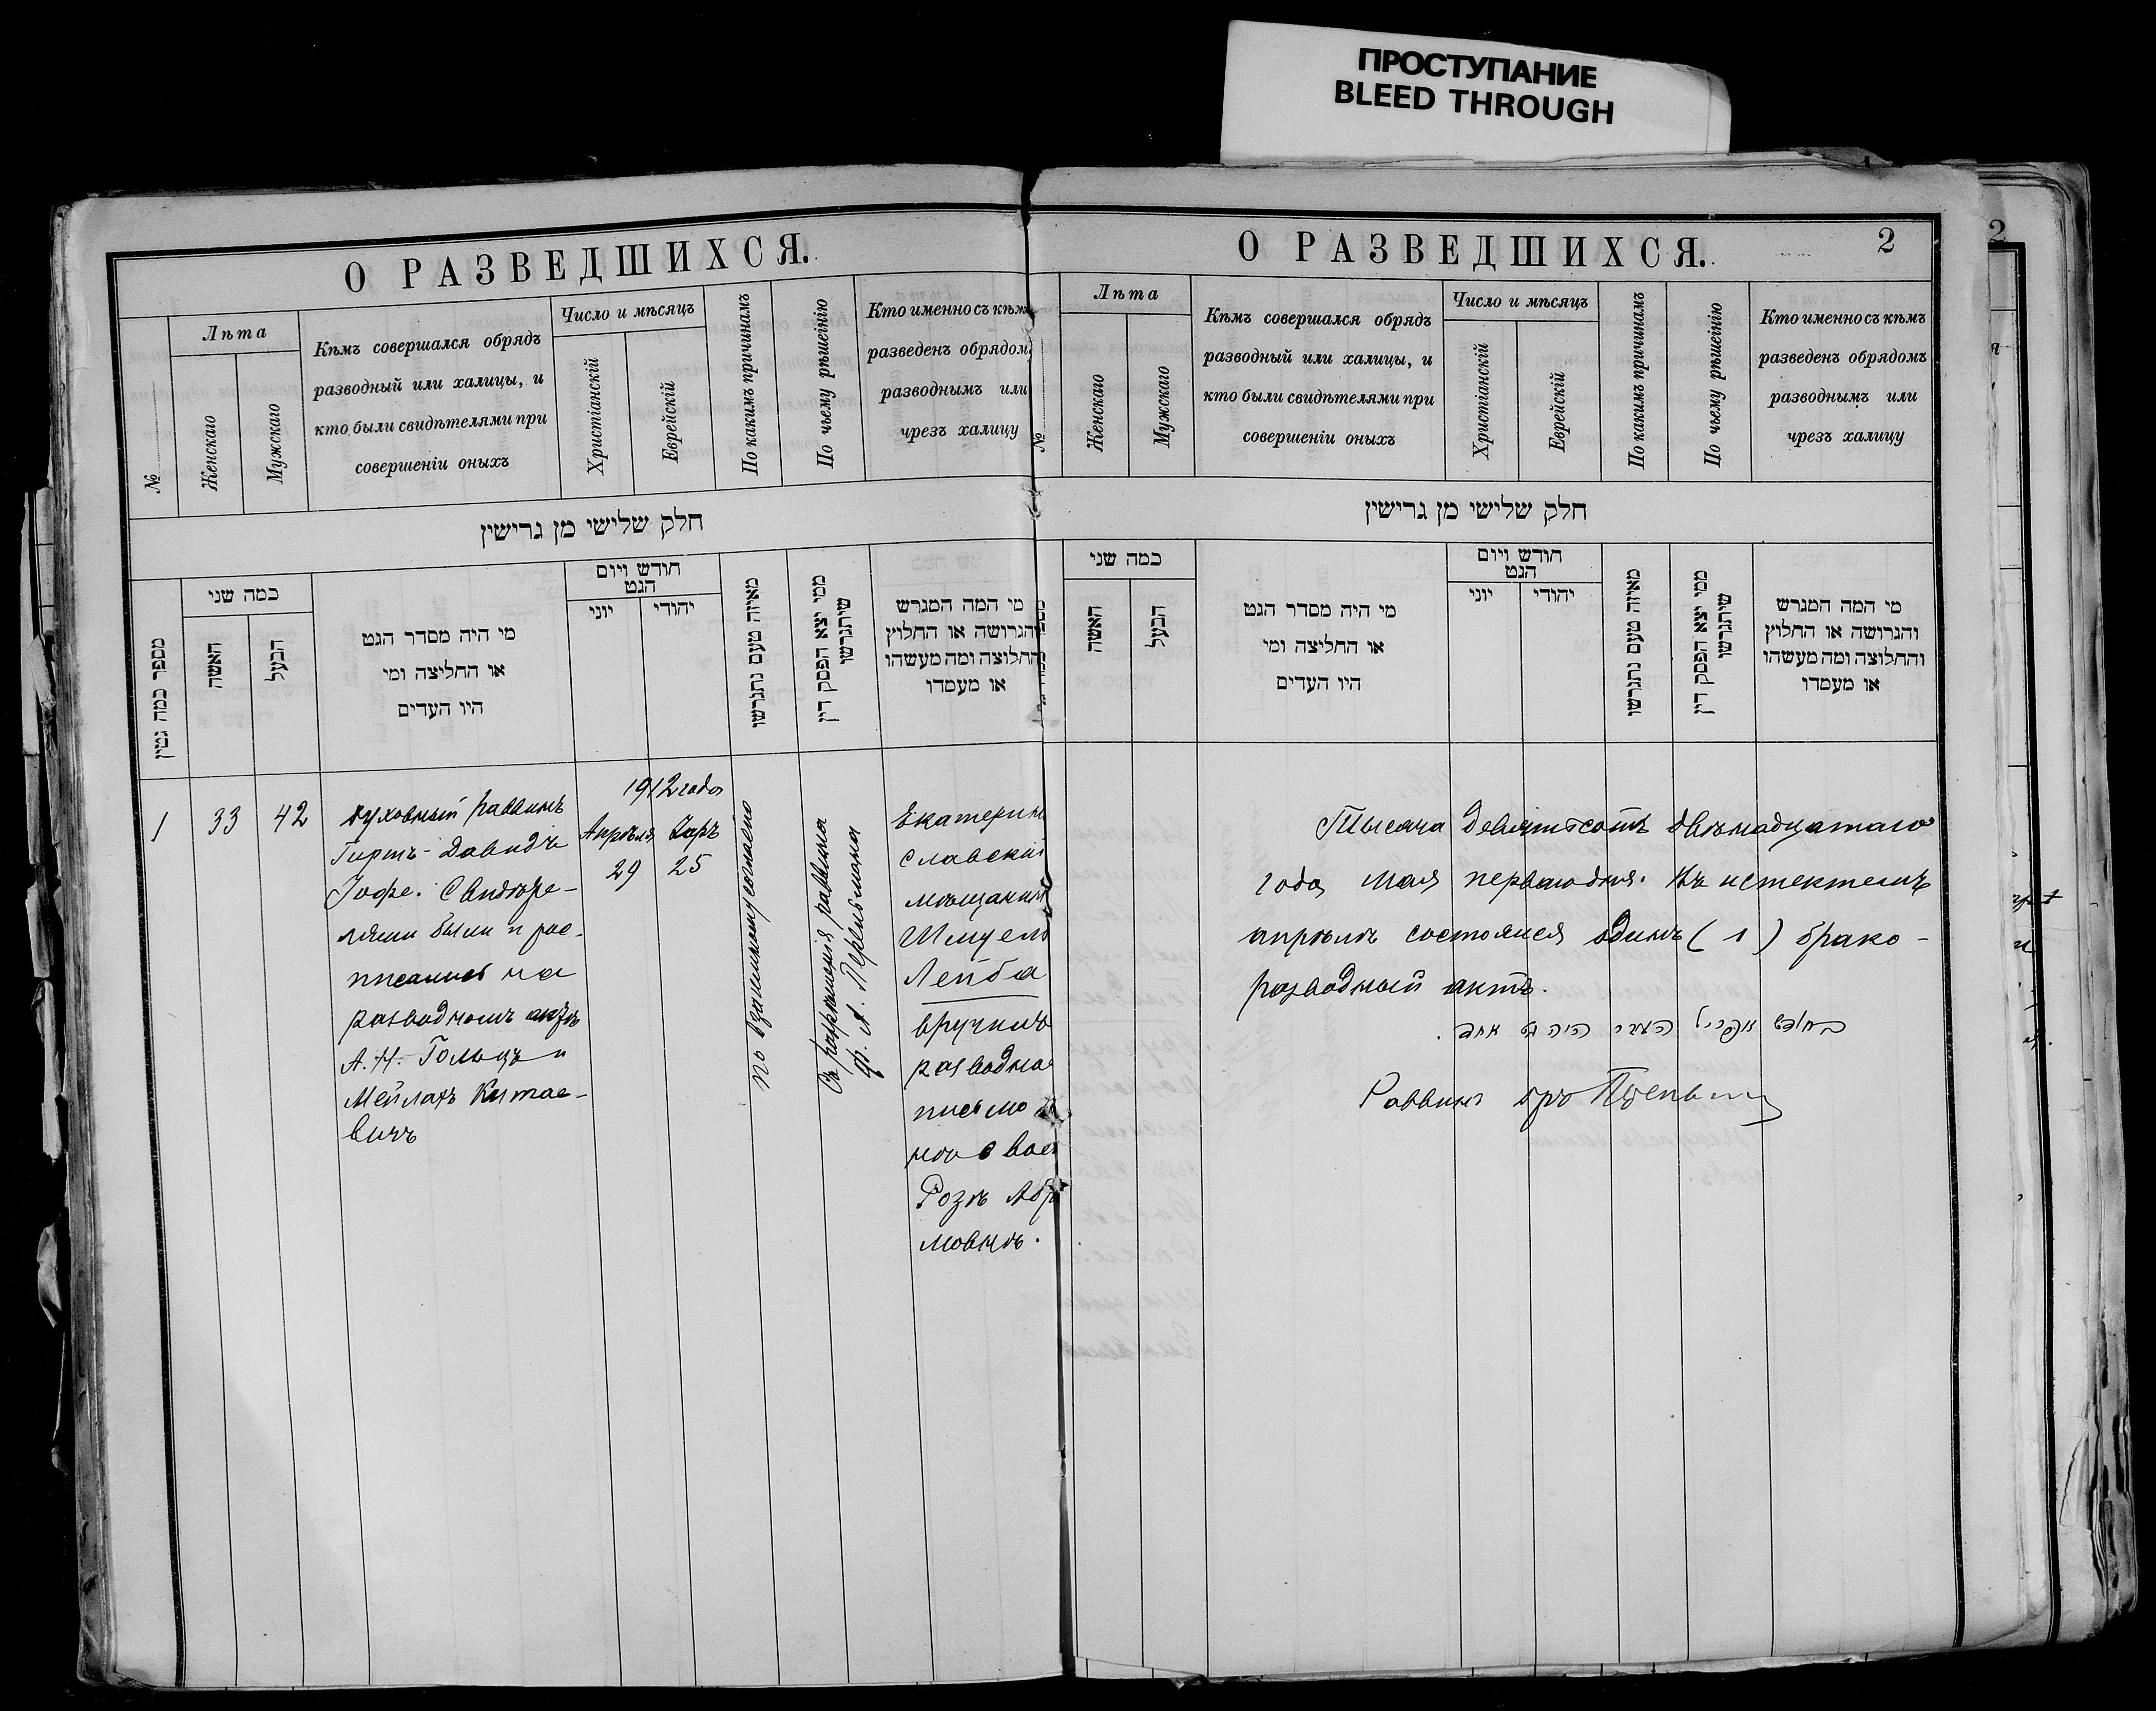 ПРОСТУПАНИЕ
BLEED THROUGH
О РАЗВЕДШИХСЯ.
№
Лѣта
Женскаго
Мужскаго
Кѣмъ совершался обрядъ
разводный или халицы, и
кто были свидѣтелями при
совершеніи оныхъ
Число и мѣсяцъ
Христіанскій
Еврейскій
По какимъ причинамъ
По чьему рѣшенію
Кто именно съ кѣмъ
разведенъ обрядом
разводнымъ или
чрезъ халицу
חלק שלישי מן גרישין
מספר כמה גטין
כמה שני
האשה
הבעל
מי היה מסדר הגט
או החליצה ומי
היו העדים
חודש ויום
הגט
יוני
יהודי
מאיזה טעם נתגרשו
ממי יצא הפסק דין
שיתגרשו
מי המה המגרש
והגרושה או החלוץ
והחלוצה ומה מעשהו
או מעמדו
1
33
42
Духовный раввинъ
Гиршъ-Давидъ
Іофе. Свидѣте-
лями были и рос-
писались на
разводномъ актѣ
А. Н. Гольцъ и
Мейлахъ Китае-
вичъ
1912 года
Апрѣля
29
Іяръ
25
по взаимному согласію
Съ разрѣшенія раввина
Ф. А. Перельмана
Екатерин
славскій
мѣщанин
Шмуель
Лейба
вручилъ
разводное
письмо
женѣ свое
Розѣ Абр
мовнѣ.
О РАЗВЕДШИХСЯ.
2
№
Лѣта
Женскаго
Мужскаго
Кѣмъ совершался обрядъ
разводный или халицы, и
кто были свидѣтелями при
совершеніи оныхъ
Число и мѣсяцъ
Христіанскій
Еврейскій
По какимъ причинамъ
По чьему рѣшенію
Кто именно съ кѣмъ
разведенъ обрядомъ
разводнымъ или
чрезъ халицу
חלק שלישי מן גרישין
כמה שני
האשה
הבעל
מי היה מסדר הגט
או החליצה ומי
היו העדים
חודש ויום
הגט
יוני
יהודי
מאיזה טעם נתגרשו
ממי יצא הפסק דין
שיתגרשו
מי המה המגרש
והגרושה או החלוץ
והחלוצה ומה מעשהו
או מעמדו
Тысяча девятьсотъ двѣнадцатаго
года мая перваго дня. Въ истекшемъ
апрѣлѣ состоялся одинъ (1) брако-
разводный актъ.
בחודש אפריל העבר היה גט אחד.
Раввинъ
2